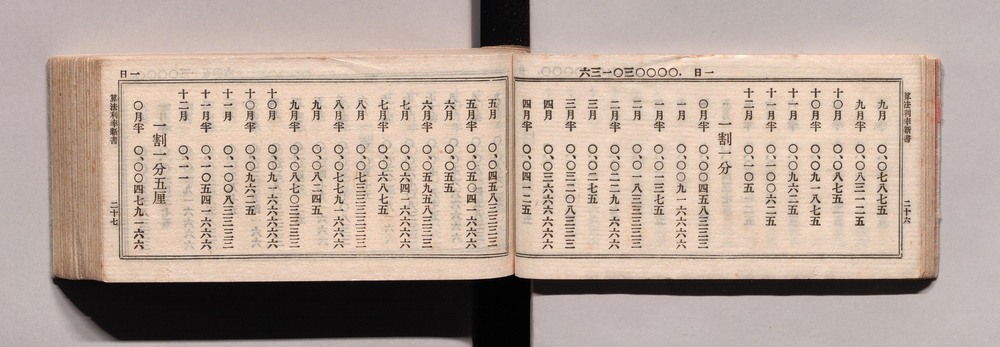 一日 .〇〇〇〇三〇一三六
算法利率新書 二十六
九月 〇、〇七八七五
九月半 〇、〇八三一二五
十〇月 〇、〇八七五
十〇月半 〇、〇九一八七五
十一月 〇、〇九六二五
十一月半 〇、一〇〇六二五
十二月 〇、一〇五
一割一分
〇月半 〇、〇〇四五八三三三
一月 〇、〇〇九一六六六六
一月半 〇、〇一三七五
二月 〇、〇一八三三三三三
二月半 〇、〇二二九一六六六
三月 〇、〇二七五
三月半 〇、〇三二〇八三三三
四月 〇、〇三六六六六六六
四月半 〇、〇四一二五
五月 〇、〇四五八三三三三
五月半 〇、〇五〇四一六六六
六月 〇、〇五五
六月半 〇、〇五九五八三三三
七月 〇、〇六四一六六六六
七月半 〇、〇六八七五
八月 〇、〇七三三三三三三
八月半 〇、〇七七九一六六六
九月 〇、〇八二五
九月半 〇、〇八七〇八三三三
十〇月 〇、〇九一六六六六六
十〇月半 〇、〇九六二五
十一月 〇、一〇〇八三三三三
十一月半 〇、一〇五四一六六六
十二月 〇、一一
一割一分五厘
〇月半 〇、〇〇四七九一六六
一日
算法利率新書 二十七